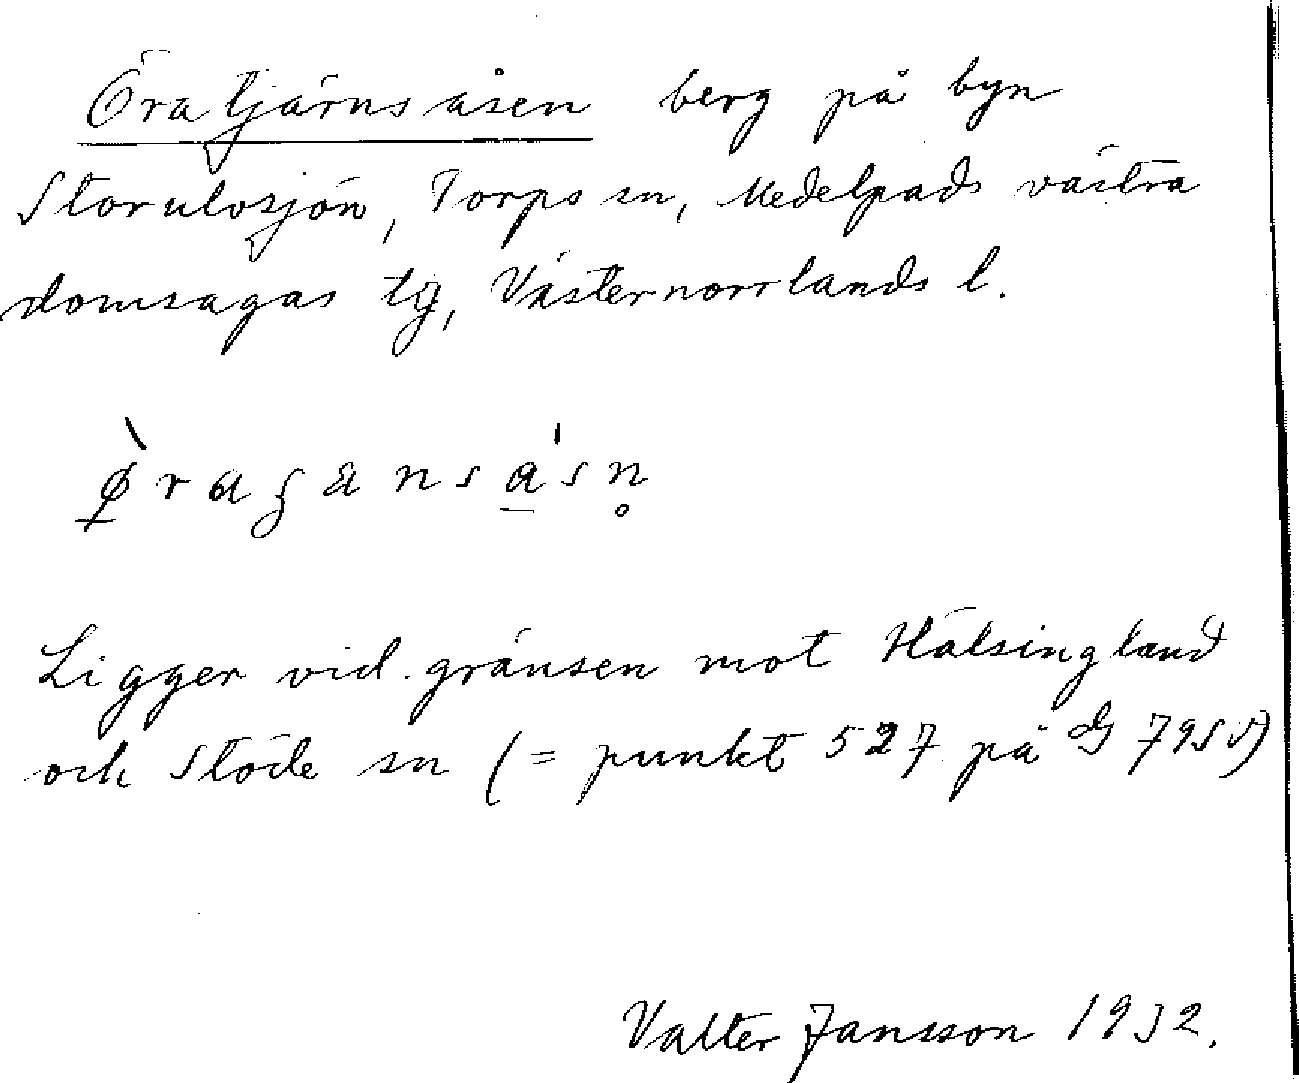 Öratjärnsåsen berg på byn
Storulvsjön, Torps sn, Medelpads västra
domsagas tg, Västernorrlands l.
Ligger vid gränsen mot Hälsingland
och Stöde sn (= punkt 527 på
Valter Jansson 1932.